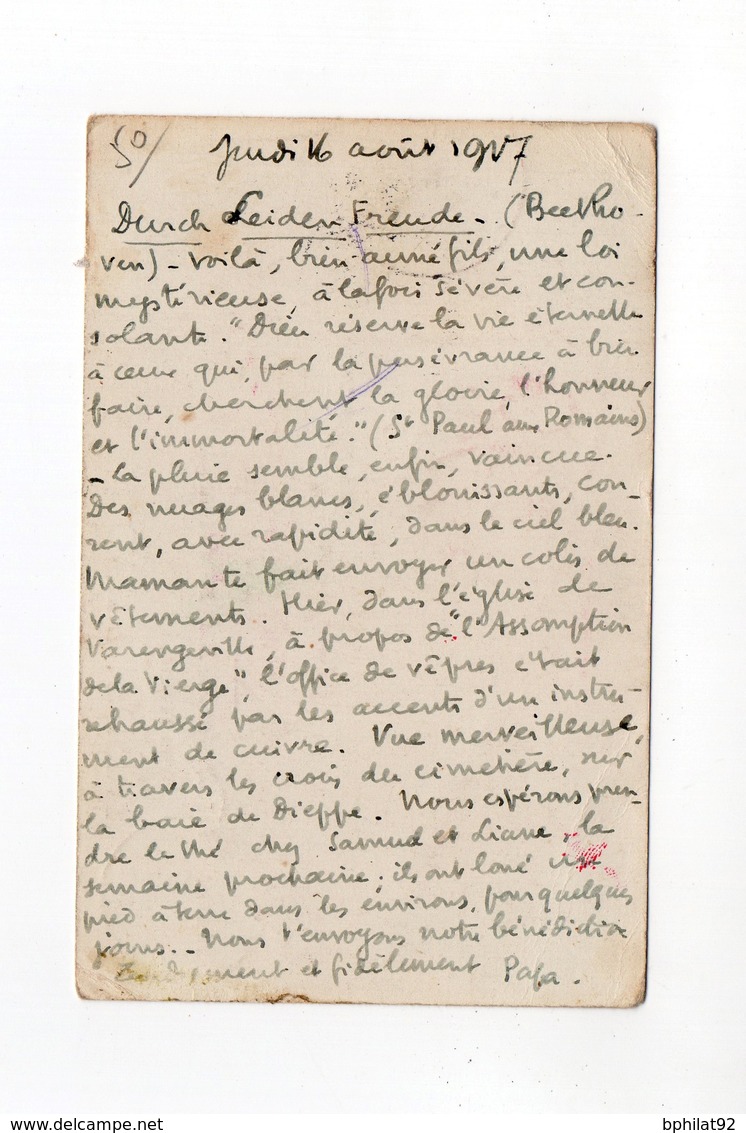 50/
Jeudi 16 août 1917
Durch Leiden Freude. (Beetho-
ven) - Voilà, bien-aimé fils, une loi
mystérieuse, à la fois sévère et con-
solante. "Dieu réserve la vie éternelle
à ceux qui, par la persévérance à bien
faire, cherchent la gloire, l'honneur
et l'immortalité." (St Paul aux Romains)
- La pluie semble, enfin, vaincue.
Des nuages blancs, éblouissants, cou-
rent, avec rapidité, dans le ciel bleu.
Maman te fait envoyer un colis de
vêtements. Hier, dans l'église de
Varengeville, à propos de "l'Assomption
de la Vierge", l'office de vêpres était
rehaussé par les accents d'un instru-
ment de cuivre. Vue merveilleuse,
à travers les croix du cimetière, sur
la baie de Dieppe. Nous espérons pren-
dre le thé chez Samuel et Liane, la
semaine prochaine; ils ont loué un
pied à terre dans les environs, pour quelques
jours. - Nous t'envoyons notre bénédiction
et fidèlement Papa.
bphilat92